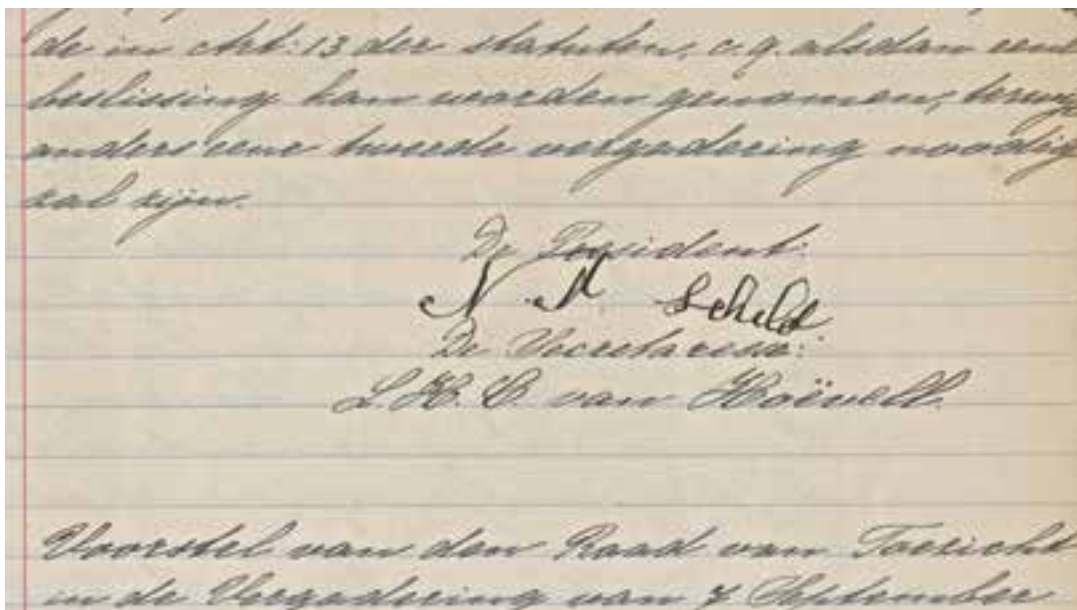 de in Art: 13 der statuten, c.q. alsdan eene
beslissing kan worden genomen, terwijl
anders eene tweede vergadering noodig
zal zijn.
De President:
N. M. Schild
De Secretaresse:
L. H. C. van Hoëvell.
Voorstel van den Raad van Toezicht
in de Vergadering van 7 September